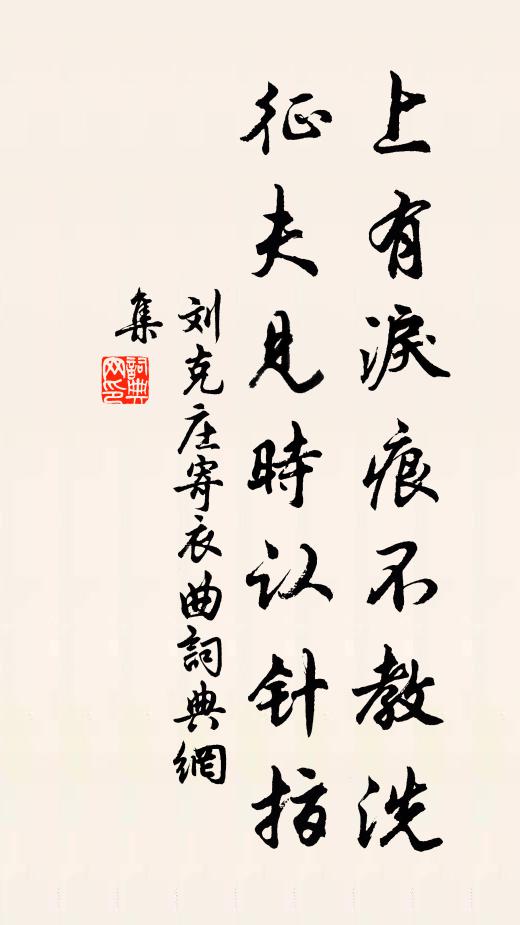 上有淚痕不教洗
征夫見時认针指
刘克庄寄衣曲詞典網
集
詞典
网印